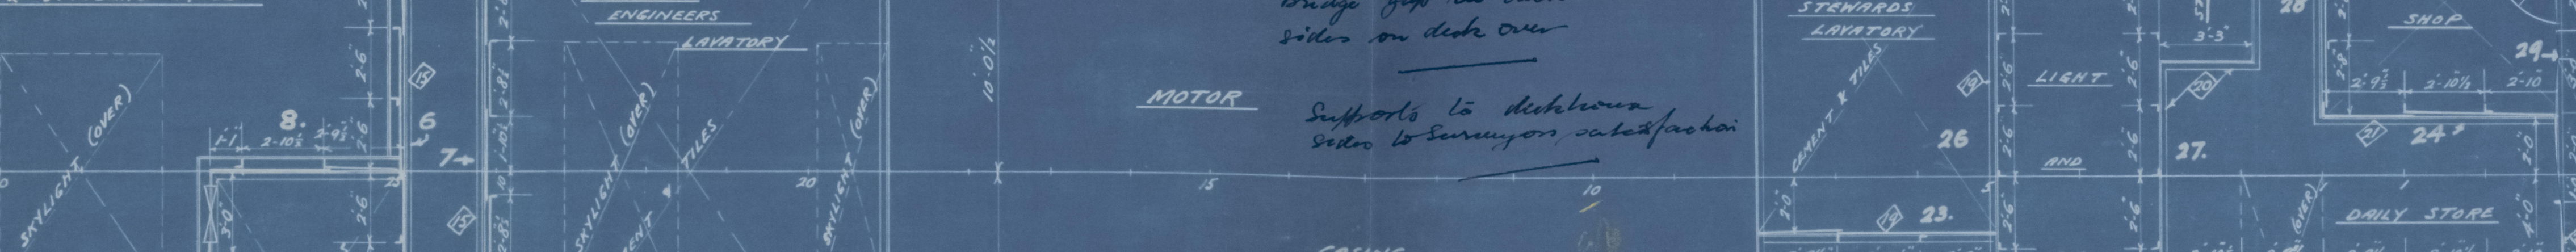 ENGINEERS
LAVATORY
SKYLIGHT (OVER)
8.
1'-1"
2'-10½"
2'-9½"
2'-6"
2'-6"
2'-6"
3'-0"
25
15
6
7
15
2'-8½"
1'-10½"
10
2'-8½"
SKYLIGHT (OVER)
TILES
SKYLIGHT (OVER)
20
10'-0½"
MOTOR
sides on deck over
Supports to deckhouse
sides to Surveyors satisfaction
15
10
5
STEWARDS
LAVATORY
CEMENT & TILES
19
26
2'-0"
19
23.
2'-6"
2'-6"
2'-6"
2'-6"
LIGHT
AND
3'-3"
20
27.
SHOP
2'-8"
2'-9½"
2'-10½"
2'-10
29
21
24
2'-0"
4'-0"
(OVER)
DAILY STORE